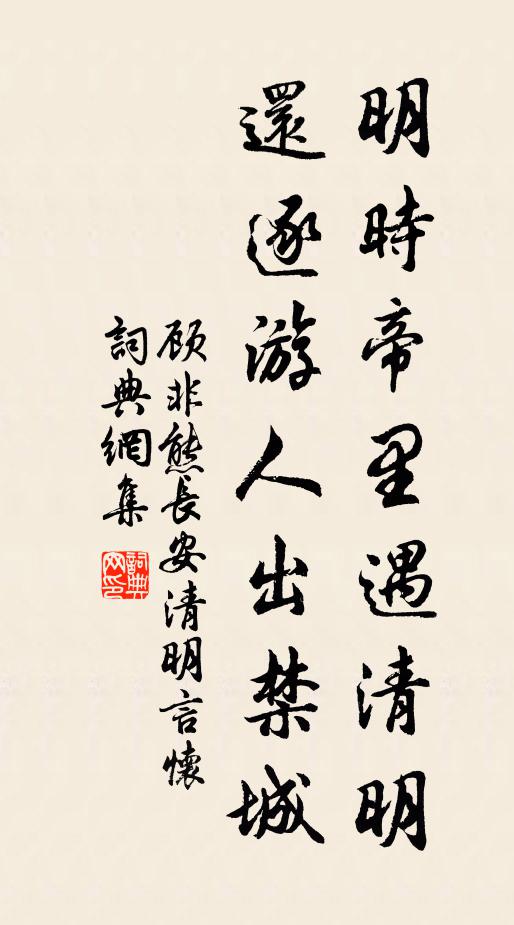 明時帝里遇清明
還逐游人出禁城
顾非熊長安清明言懷
詞典網集
詞典网印